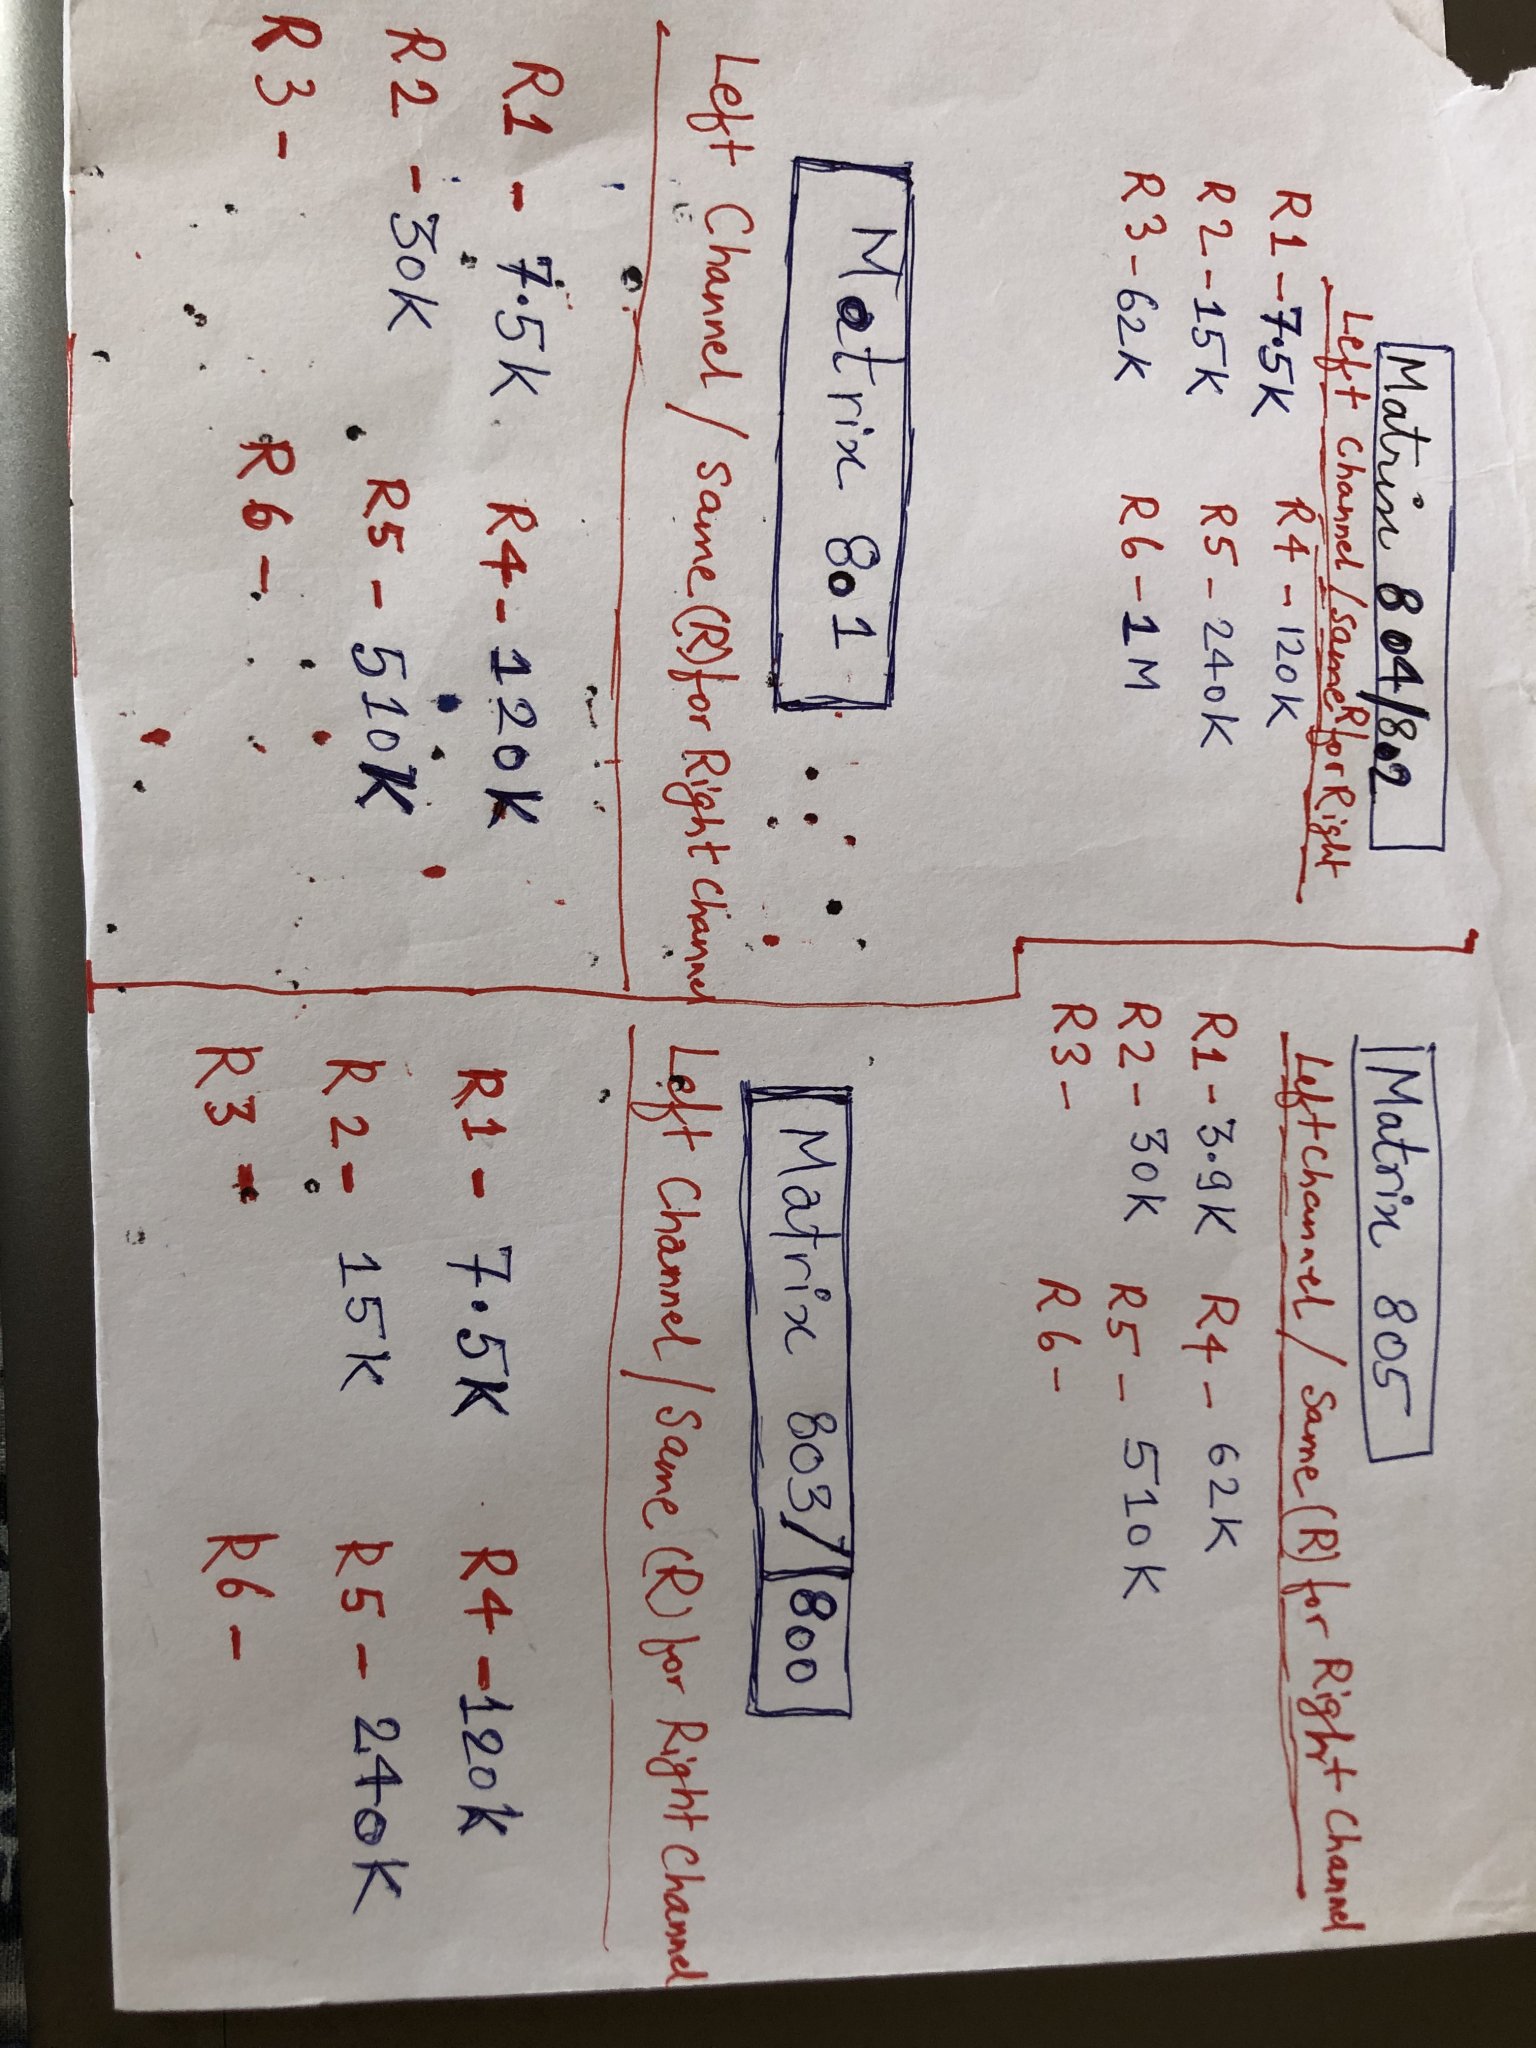 Matrix 804/802
Left Channel / Same R for Right
R1 - 7.5K R4 - 120K
R2 - 15K R5 - 240K
R3 - 62K R6 - 1M
Matrix 805
Left Channel / Same (R) for Right Channel
R1 - 3.9K R4 - 62K
R2 - 30K R5 - 510K
R3 - R6 -
Matrix 801
Left Channel / Same (R) for Right Channel
R1 - 7.5K R4 - 120K
R2 - 30K R5 - 510K
R3 - R6 -
Matrix 803/800
Left Channel / Same (R) for Right Channel
R1 - 7.5K R4 - 120K
R2 - 15K R5 - 240K
R3 - R6 -